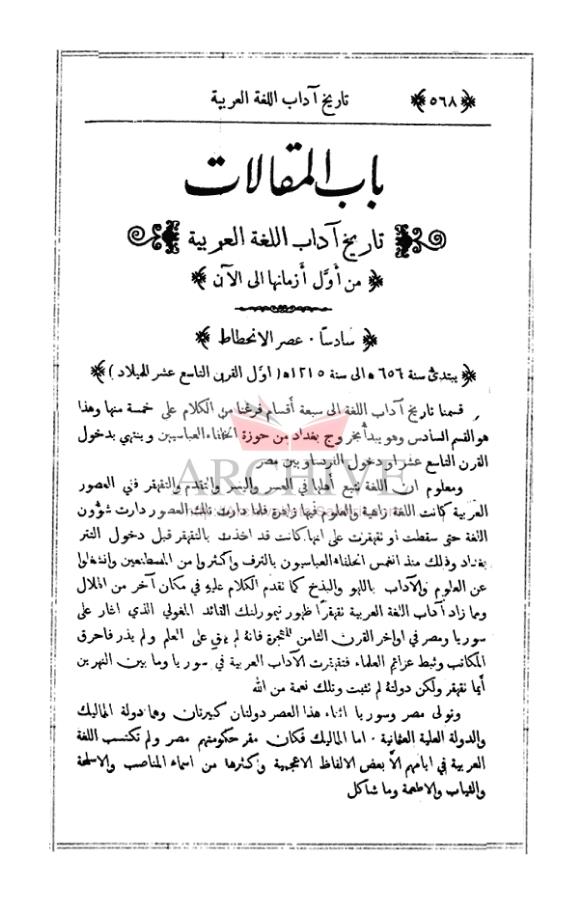 ﴿ ٥٦٨ ﴾ تاريخ آداب اللغة العربية
باب المقالات
تاريخ آداب اللغة العربية
﴿ من أوَّل أزمانها الى الآن ﴾
﴿ سادساً · عصر الانحطاط ﴾
﴿ يبتدئ سنة ٦٥٦ ه الى سنة ١٢١٥ ه ( اوَّل القرن التاسع عشر للميلاد ) ﴾
قسمنا تاريخ آداب اللغة الى سبعة أقسام فرغنا من الكلام على خمسة منها وهذا
هو القسم السادس وهو يبدأ بخروج بغداد من حوزة الخلفاء العباسيين وينتهي بدخول
القرن التاسع عشر او دخول الفرنساويين مصر
ومعلوم ان اللغة تتبع أهلها في العسر واليسر والتقدم والتقهقر ففي العصور
العربية كانت اللغة زاهية والعلوم فيها زاهرة فلما دارت تلك العصور دارت شؤون
اللغة حتى سقطت أو تقهقرت على انها كانت قد اخذت بالتقهقر قبل دخول التتر
بغداد وذلك منذ انغمس الخلفاء العباسيون بالترف واكثروا من المصطنعين وانشغلوا
عن العلوم والآداب باللهو والبذخ كما تقدم الكلام عليه في مكان آخر من الهلال
ومما زاد آداب اللغة العربية تقهقراً ظهور تيمورلنك القائد المغولي الذي اغار على
سوريا ومصر في اواخر القرن الثامن للهجرة فانه لم يبقِ على العلم ولم يذر فاحرق
المكاتب وثبط عزائم العلماء فتقهقرت الآداب العربية في سوريا وما بين النهرين
أيما تقهقر ولكن دولتهُ لم تثبت وتلك نعمة من الله
وتولى مصر وسوريا اثناء هذا العصر دولتان كبيرتان وهما دولة المماليك
والدولة العلية العثمانية · اما المماليك فكان مقر حكومتهم مصر ولم تكتسب اللغة
العربية في ايامهم الاَّ بعض الالفاظ الاعجمية وكثرها من اسماء المناصب والاسلحة
والثياب والاطعمة وما شاكل
ARCHIVE